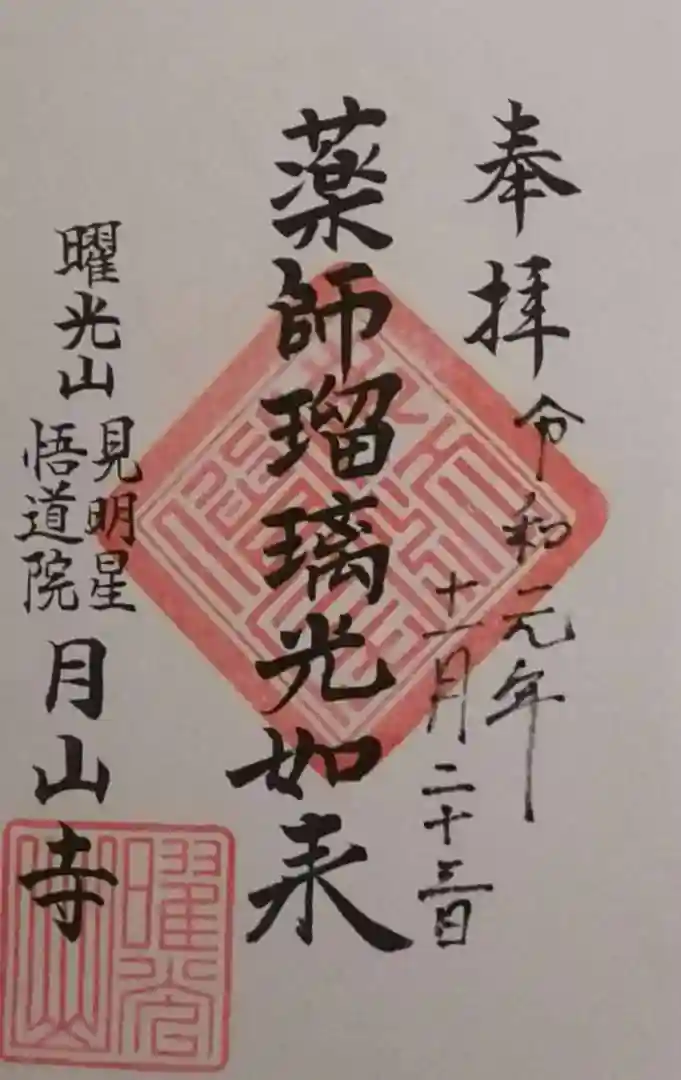 奉拝
令和元年
十一月二十三日
薬師瑠璃光如来
曜光山
見明星
悟道院
月山寺
曜光山